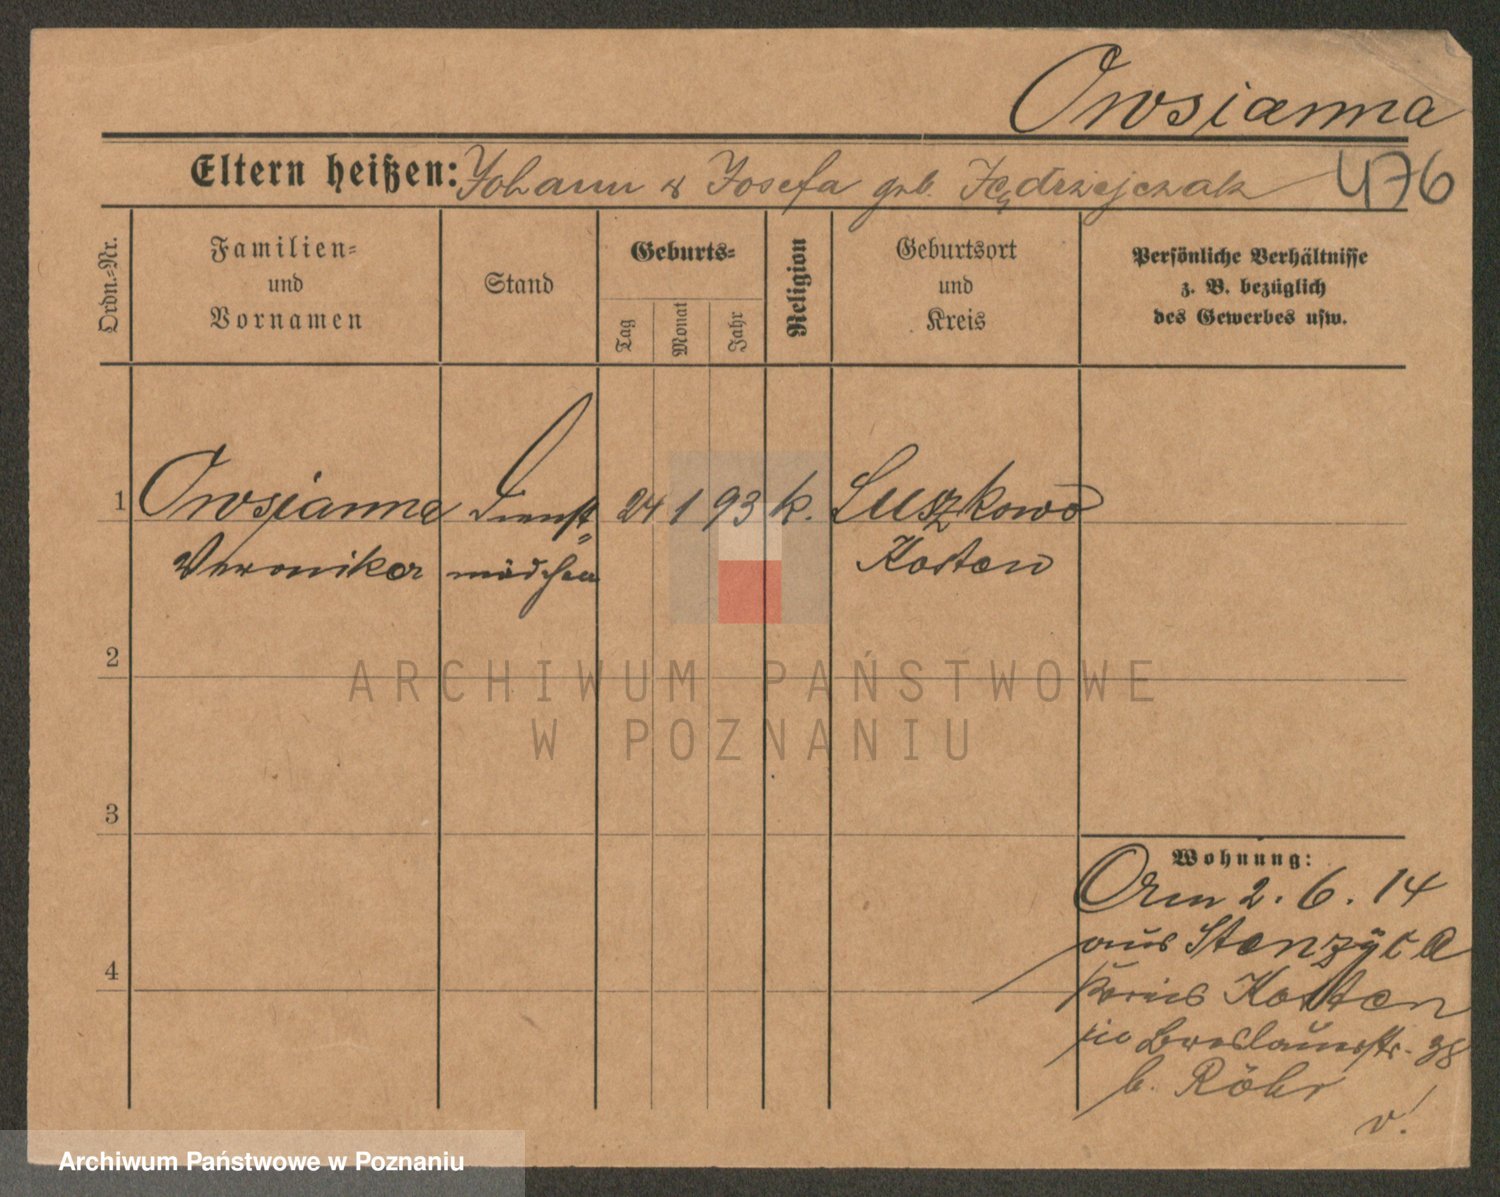 Owsianna
Eltern heißen: Johann & Josefa geb. Jędrzejczak 476
Ordn.=Nr.
Familien=
und
Vornamen
Stand
Geburts=
Tag
Monat
Jahr
Religion
Geburtsort
und
Kreis
Persönliche Verhältnisse
z. B. bezüglich
des Gewerbes usw.
1 Owsianna Dienst= 24 1 93 k. Luszkowo
Veronika mädchen Kosten
2
ARCHIWUM PAŃSTWOWE
W POZNANIU
3
Wohnung:
Am 2. 6. 14
aus
4
Kreis Kosten
Breslauerstr. 38
b. Röhr
v!
Archiwum Państwowe w Poznaniu